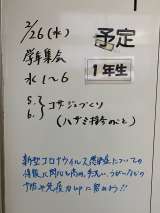 2/26(水)
予定
1年生
学年集会
水1~6
5.
6. コサージュづくり
(ハサミ持参のこと)
新型コロナウイルス感染症についての
情報に関心を高め、手洗い、うがいなどの
予防や免疫力upに努めよう!!